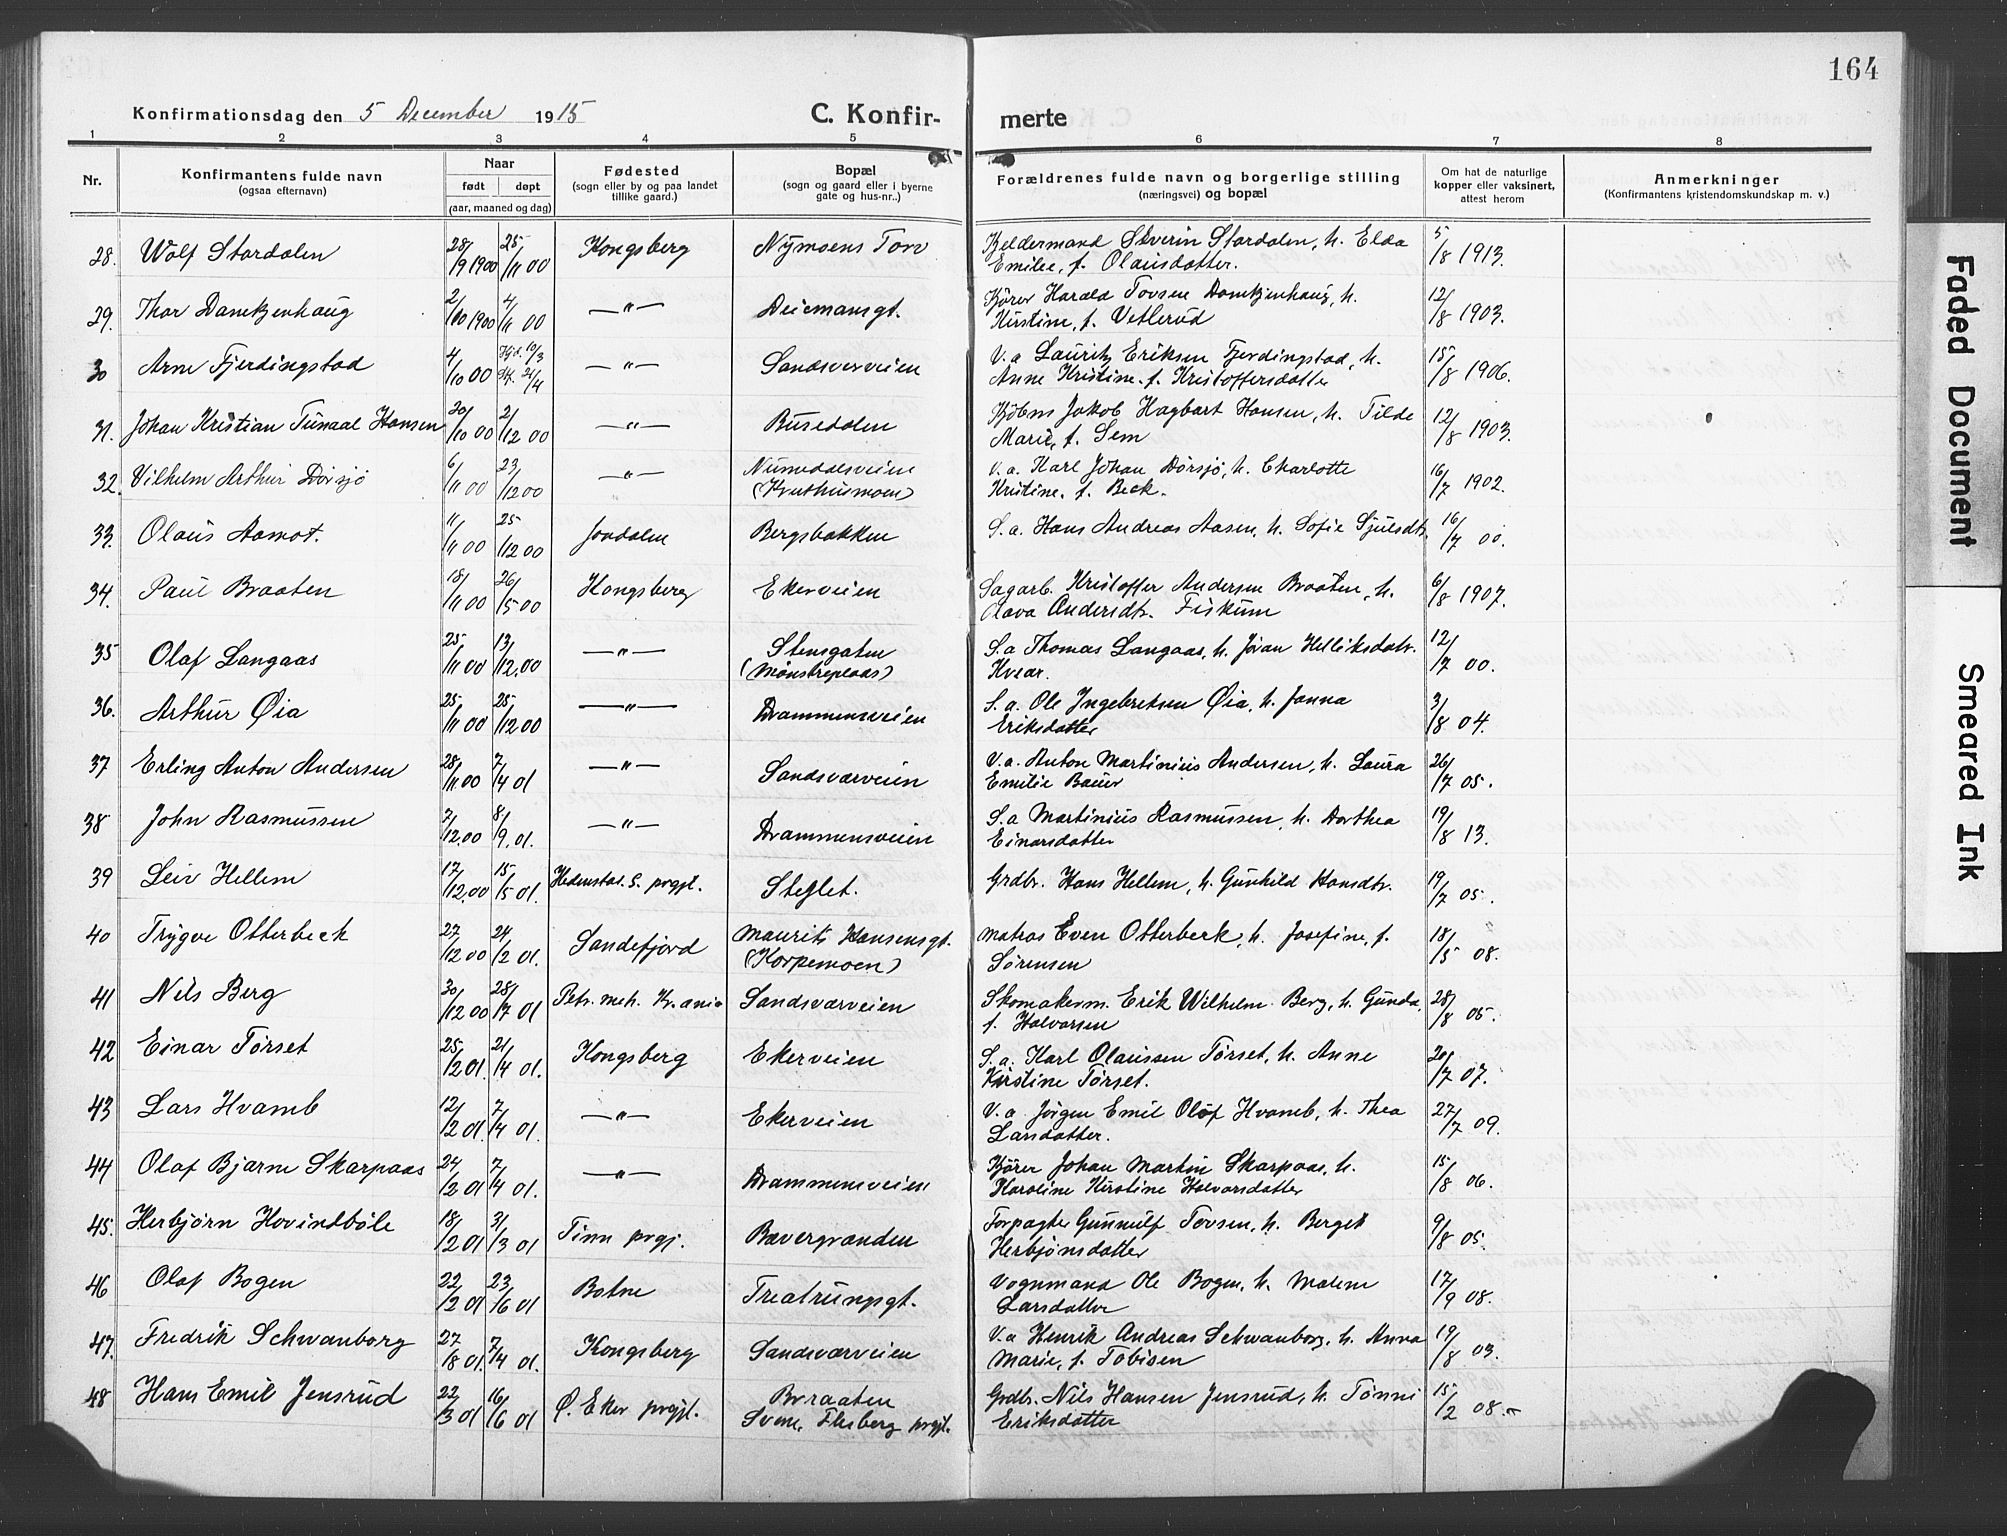 164
Konfirmationsdag den 5 December 1915
C. Konfir- merte
1 2 3 4 5 6 7 8
Nr.
Konfirmantens fulde navn
(ogsaa efternavn)
Naar
født døpt
(aar, maaned og dag)
Fødested
(sogn eller by og paa landet
tillike gaard.)
Bopæl
(sogn og gaard eller i byerne
gate og hus-nr..)
Forældrenes fulde navn og borgerlige stilling
(næringsvei) og bopæl
Om hat de naturlige
kopper eller vaksinert,
attest herom
Anmerkninger
(Konfirmantens kristendomskundskap m. v.)
28. Wolf Stordalen 28/9 1900 25/11 00 Kongsberg Nymoens Torv Kjeldermand Severin Stordalen, h. Elda 5/8 1913.
Emilie, f. Olausdatter.
29. Thor Damkjenhaug 2/10 1900 4/11 00 —"— Deicmansgt. Kjører Harald Tovsen Damkjenhaug, h. 12/8 1903.
Kirstine, f. Vetlerud
30 Arne Fjerdingstad 4/10 00 Hjd. 10/3 —"— Sandsverveien V.a Lauritz Eriksen Fjerdingstad, h. 15/8 1906.
Kk. 21/4 Anne Kristine. f. Kristoffersdatter
31. Johan Kristian Tunaal Hansen 20/10 00 2/12 00 —"— Busedalen Kjøbm Jakob Hagbart Hansen, h. Tilde 12/8 1903.
Marie, f. Sem
32. Vilhelm Arthur Dørsjö 6/11 00 23/12 00 —"— Numedalsveien V.a. Karl Johan Dørsjø, h. Charlotte 16/7 1902.
(Knuthusmoen) Kristine. f. Beck.
33. Olaus Aamot. 11/11 00 25/12 00 Jondalen Bergsbakken S.a. Hans Andreas Aasen, h. Sofie Sjulsdtr. 16/7 00.
34. Paul Braaten 18/11 00 26/5 00 Kongsberg Ekerveien Sagarb. Kristoffer Andersen Braaten, h. 6/8 1907.
Olava Andersdtr. Fiskum
35 Olaf Langaas 25/11 00 13/12.00 —"— Stensgaten S.a Thomas Langaas, h. Jøran Helliksdatr. 12/7 00.
(Mønstreplads) Kvear.
36. Arthur Øia 25/11 00 25/12 00 —"— Drammensveien S.a. Ole Ingebretsen Øia, h. Janna 3/8 04.
Eriksdatter
37 Erling Anton Andersen 28/11 00 7/4 01 —"— Sandsværveien V.a. Anton Martinius Andersen, h. Laura 26/7 05.
Emilie Bauer
38 John Rasmussen 7/12.00 8/9.01. —"— Drammensveien S.a Martinius Rasmussen, h. Dorthea 19/8 13.
Einarsdatter
39 Leiv Hellem 17/12.00 15/5 01. Hedenstad. S. prgjl. Steglet. Grdbr. Hans Hellem, h. Gunhild Hansdtr. 19/7 05.
40 Trygve Otterbeck 27/12 00 24/2 01. Sandefjord Maurits Hansensgt. Matros Even Otterbeck, h. Josefine, f. 18/5 08.
(Korpemoen) Sørensen
41 Nils Berg 30/12 00 28/7 01 Petr. meh. Kr.ania Sandsværveien Skomakerm. Erik Wilhelm Berg, h. Gunda, 28/8 05.
f. Halvorsen
42 Einar Tørset 25/2 01. 21/4 01. Kongsberg Ekerveien S.a. Karl Olaussen Tørset, h. Anne 20/7 07.
Kirstine Tørset.
43 Lars Hvamb 12/2 01. 7/4 01. —"— Ekerveien V.a. Jörgen Emil Olaf Hvamb, h. Thea 27/7 09.
Larsdatter.
44 Olaf Bjarne Skarpaas 24/2 01 7/4 01. —"— Drammensveien Kjører Johan Martin Skarpaas, h. 15/8 06.
Karoline Kirstine Halvorsdatter
45. Herbjørn Hovindbøle 18/2 01 31/3 01 Tinn prgj. Bævergranden Forpagter Gunnulf Tovsen, h. Berget 9/8 05.
Herbjønsdatter
46 Olaf Bogen 22/2 01 23/6 01 Botne Treatrungsgt. Vognmand Ole Bogen, h. Malene 17/9 08.
Larsdatter
47. Fredrik Schwanborg 27/18 01. 7/4 01. Kongsberg Sandsværveien V.a Henrik Andreas Schwanborg, h. Anna 19/8 03.
Marie, f. Tobisen
48 Hans Emil Jensrud 22/3 01 16/6 01 Ø. Eker prgjl. Boraaten Grdbr. Nils Hansen Jensrud, h. Tønni 15/2 08.
Svene, Flesberg prgjl. Eriksdatter
Faded Document
Smeared Ink